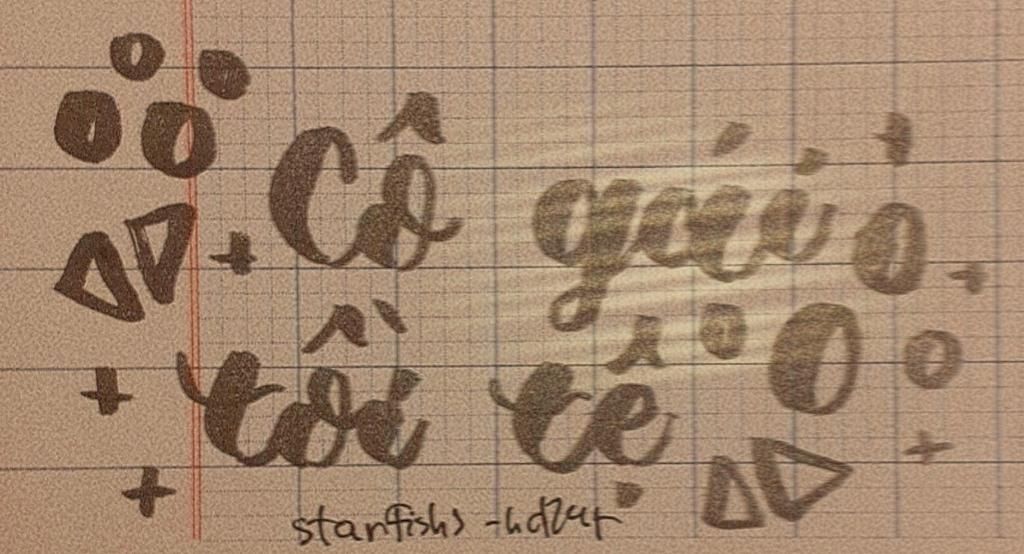 Cô gái
tồi tệ
starfishs